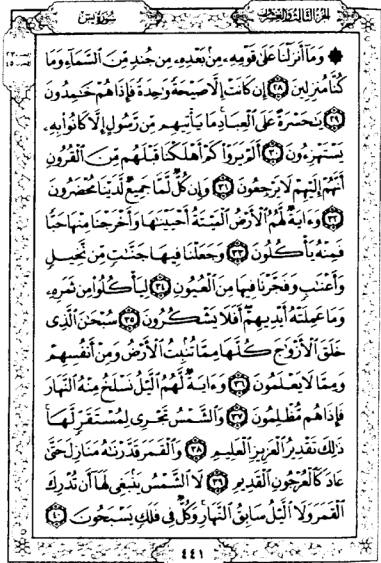 الجزء الثالث والعشرون
سورة يس
۞ وَمَا أَنزَلْنَا عَلَىٰ قَوْمِهِۦ مِنۢ بَعْدِهِۦ مِن جُندٍ مِّنَ السَّمَآءِ وَمَا
كُنَّا مُنزِلِينَ ٢٨ إِن كَانَتْ إِلَّا صَيْحَةً وَٰحِدَةً فَإِذَا هُمْ خَٰمِدُونَ
٢٩ يَٰحَسْرَةً عَلَى الْعِبَادِ مَا يَأْتِيهِم مِّن رَّسُولٍ إِلَّا كَانُوا۟ بِهِۦ
يَسْتَهْزِءُونَ ٣٠ أَلَمْ يَرَوْا۟ كَمْ أَهْلَكْنَا قَبْلَهُم مِّنَ الْقُرُونِ
أَنَّهُمْ إِلَيْهِمْ لَا يَرْجِعُونَ ٣١ وَإِن كُلٌّ لَّمَّا جَمِيعٌ لَّدَيْنَا مُحْضَرُونَ
٣٢ وَءَايَةٌ لَّهُمُ الْأَرْضُ الْمَيْتَةُ أَحْيَيْنَٰهَا وَأَخْرَجْنَا مِنْهَا حَبًّا
فَمِنْهُ يَأْكُلُونَ ٣٣ وَجَعَلْنَا فِيهَا جَنَّٰتٍ مِّن نَّخِيلٍ
وَأَعْنَٰبٍ وَفَجَّرْنَا فِيهَا مِنَ الْعُيُونِ ٣٤ لِيَأْكُلُوا۟ مِن ثَمَرِهِۦ
وَمَا عَمِلَتْهُ أَيْدِيهِمْ أَفَلَا يَشْكُرُونَ ٣٥ سُبْحَٰنَ الَّذِى
خَلَقَ الْأَزْوَٰجَ كُلَّهَا مِمَّا تُنۢبِتُ الْأَرْضُ وَمِنْ أَنفُسِهِمْ
وَمِمَّا لَا يَعْلَمُونَ ٣٦ وَءَايَةٌ لَّهُمُ الَّيْلُ نَسْلَخُ مِنْهُ النَّهَارَ
فَإِذَا هُم مُّظْلِمُونَ ٣٧ وَالشَّمْسُ تَجْرِى لِمُسْتَقَرٍّ لَّهَا
ذَٰلِكَ تَقْدِيرُ الْعَزِيزِ الْعَلِيمِ ٣٨ وَالْقَمَرَ قَدَّرْنَٰهُ مَنَازِلَ حَتَّىٰ
عَادَ كَالْعُرْجُونِ الْقَدِيمِ ٣٩ لَا الشَّمْسُ يَنۢبَغِى لَهَآ أَن تُدْرِكَ
الْقَمَرَ وَلَا الَّيْلُ سَابِقُ النَّهَارِ وَكُلٌّ فِى فَلَكٍ يَسْبَحُونَ ٤٠
٤٤١